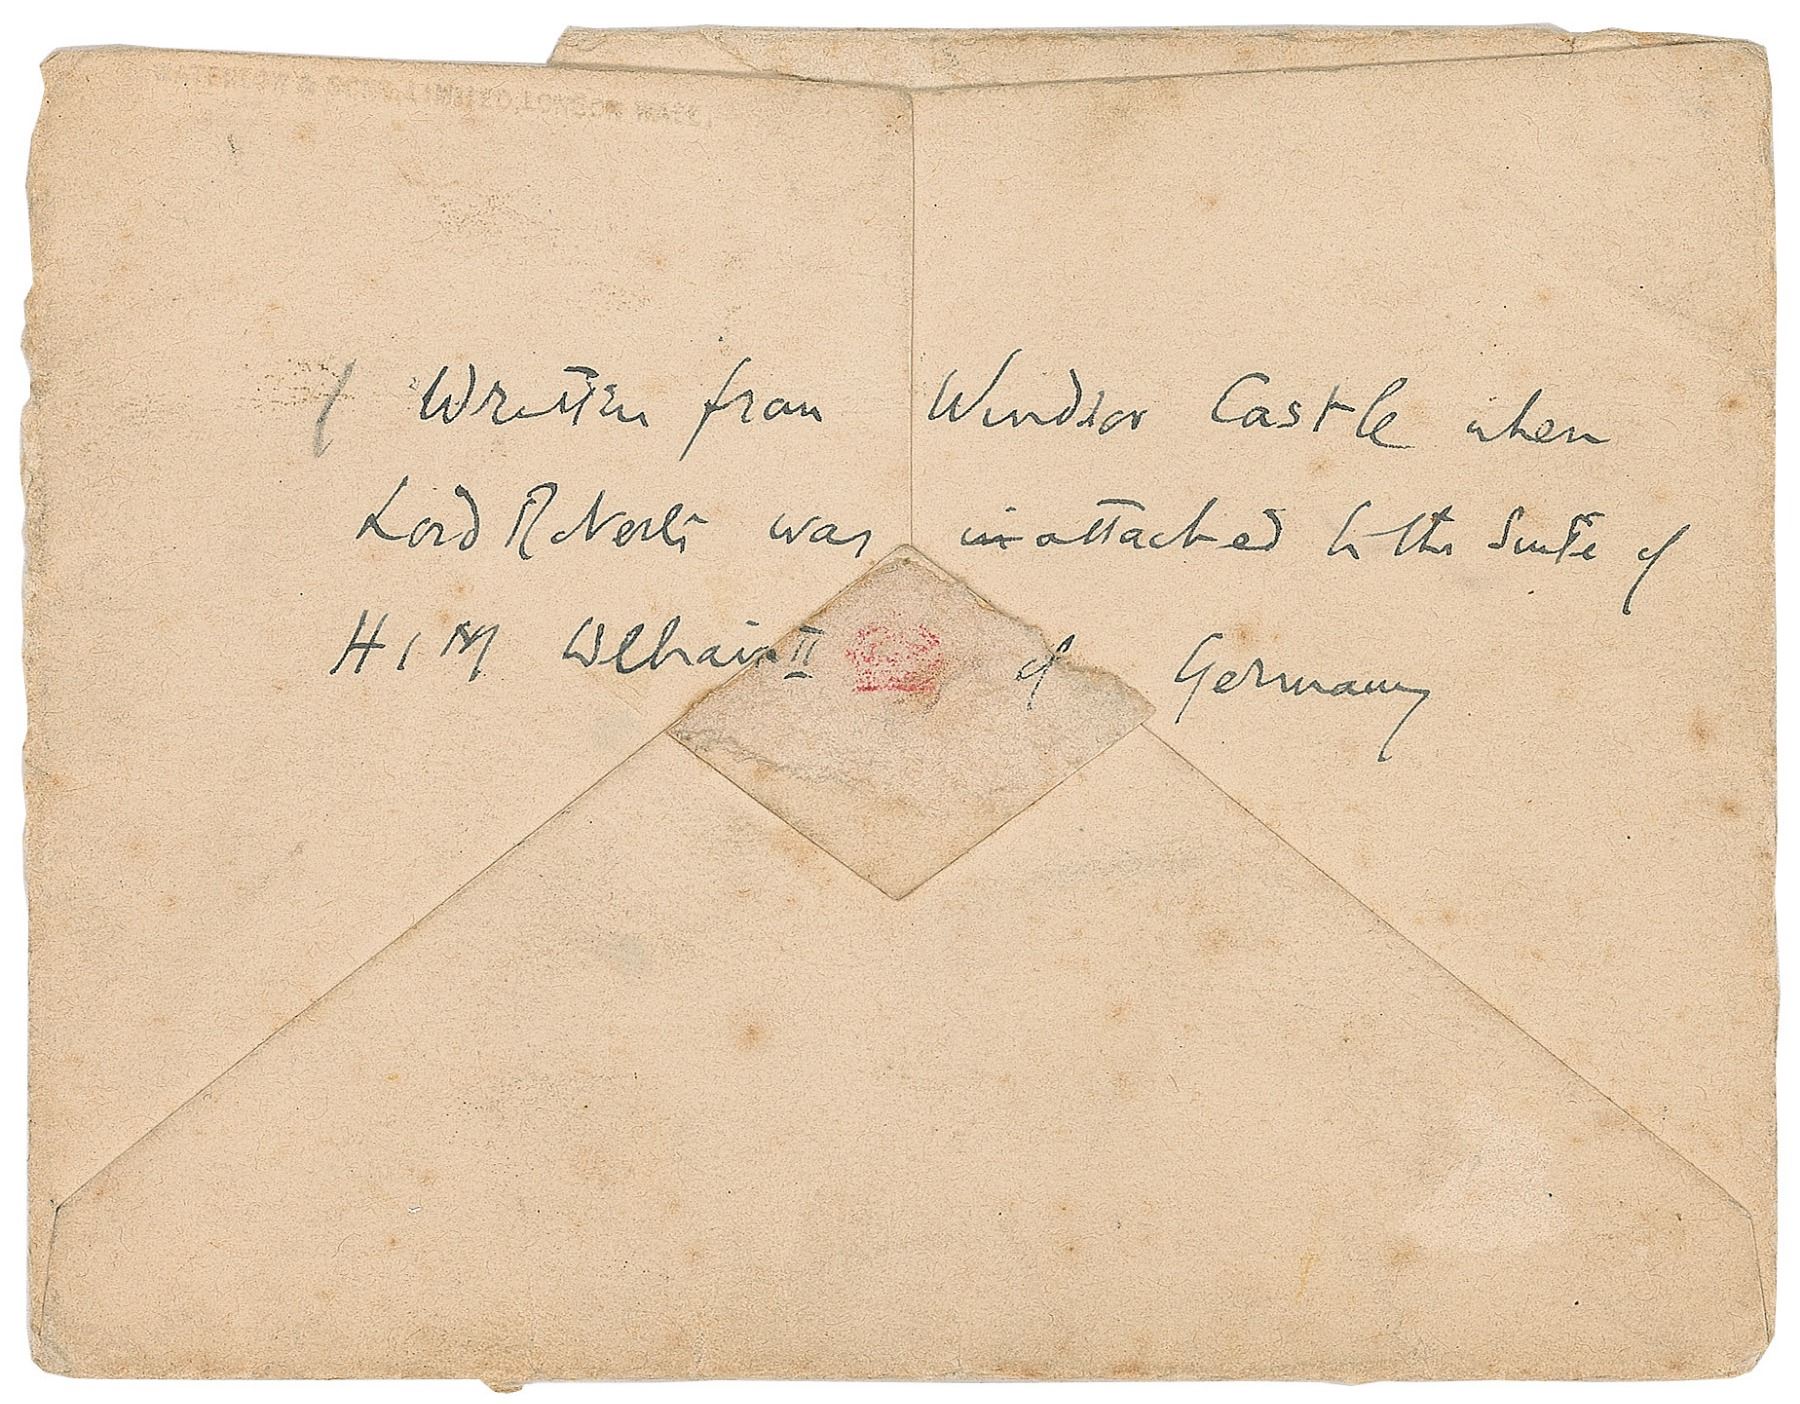 WATERLOW & SONS LIMITED, LONDON WALL.
/ Written from Windsor Castle when
Lord Roberts was in attached to the Suite of
H I M Wilhelm II of Germany